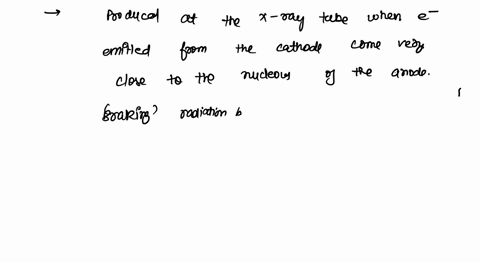 → Produced at the x-ray tube when e⁻
emitted from the cathode come very
close to the nucleous of the anode.
(Braking) radiation b